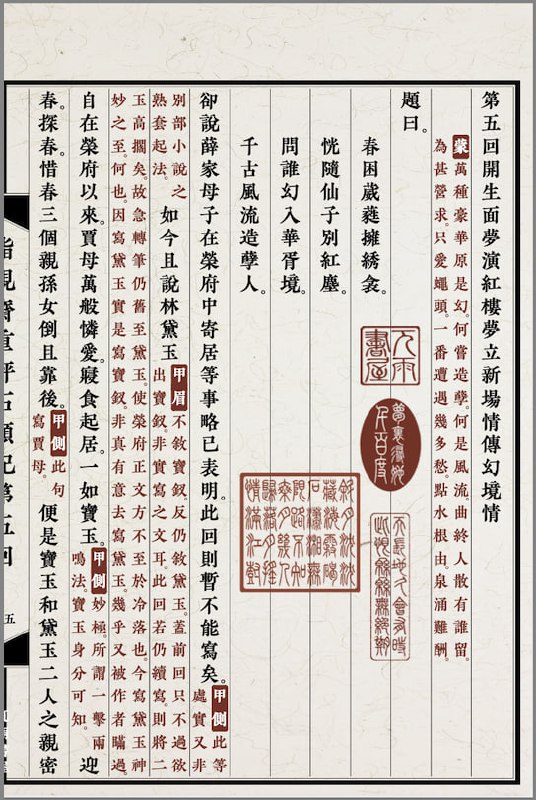 第五回開生面夢演紅樓夢立新場情傳幻境情
蒙
萬種豪華原是幻。何嘗造孽。何是風流。曲終人散有誰留。
為甚營求。只愛蠅頭。一番遭遇幾多愁。點水根由。泉涌難酬。
題曰。
春困葳蕤擁綉衾。
恍隨仙子別紅塵。
問誰幻入華胥境。
千古風流造孽人。
天長地久會有時
此恨綿綿無絕期
斜月沉沉
藏海霧碣
石瀟湘無
限路不知
乘月幾人
歸落月搖
情滿江樹
卻說薛家母子在榮府中寄居等事略已表明。此回則暫不能寫矣。
甲側
此等
處實又非
別部小說之
熟套起法。
如今且說林黛玉
甲眉
不敘寶釵。反仍敘黛玉。蓋前回只不過欲
出寶釵。非實寫之文耳。此回若仍續寫。則將二
玉高擱矣。故急轉筆仍舊至黛玉。使榮府正文方不至於冷落也。今寫黛玉神
妙之至。何也。因寫黛玉實是寫寶釵。非真有意去寫黛玉。幾乎又被作者瞞過。
自在榮府以來。賈母萬般憐愛。寢食起居。一如寶玉。
甲側
妙極。所謂一擊兩
鳴法。寶玉身分可知。
迎
春。探春。惜春三個親孫女倒且靠後。
甲側
此句
寫賈母。
便是寶玉和黛玉二人之親密
脂硯齋重評石頭記第五回
五